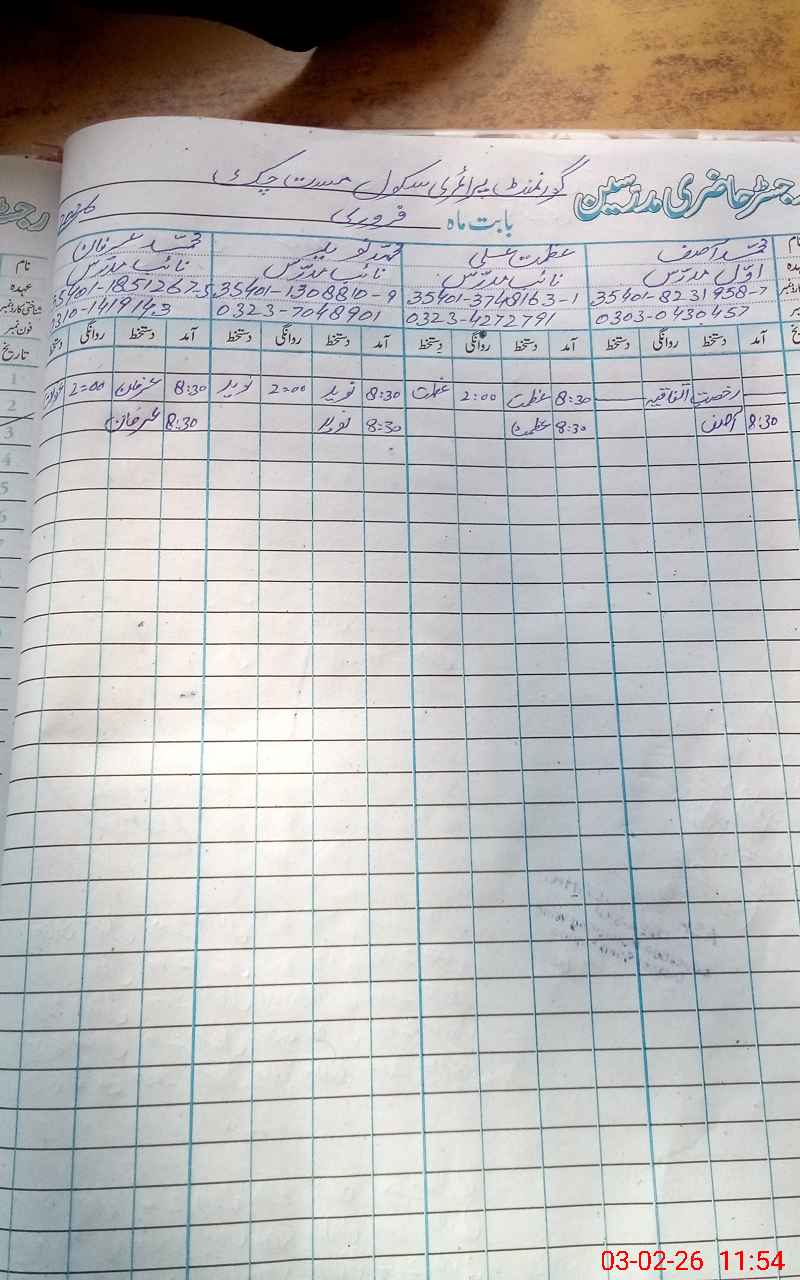 رجسٹر حاضری مدرسین گورنمنٹ پرائمری سکول مست چک
بابت ماہ فروری 2026
نام محمد آصف عظمت علی محمد نوید محمد عرفان
عہدہ اوّل مدرّس نائب مدرّس نائب مدرّس نائب مدرّس
شناختی کارڈ نمبر 35401-8231958-7 35401-3749163-1 35401-1308810-9 35401-1851267-5
فون نمبر 0303-0430457 0323-4272791 0323-7048901 0310-1419143
تاریخ آمد دستخط روانگی دستخط آمد دستخط روانگی دستخط آمد دستخط روانگی دستخط آمد دستخط روانگی دستخط
1
2 رخصت اتفاقیہ 8:30 عظمت 2:00 عظمت 8:30 نوید 2:00 نوید 8:30 عرفان 2:00 عرفان
3 8:30 آصف 8:30 عظمت 8:30 نوید 8:30 عرفان
4
5
6
7
8
9
03-02-26 11:54